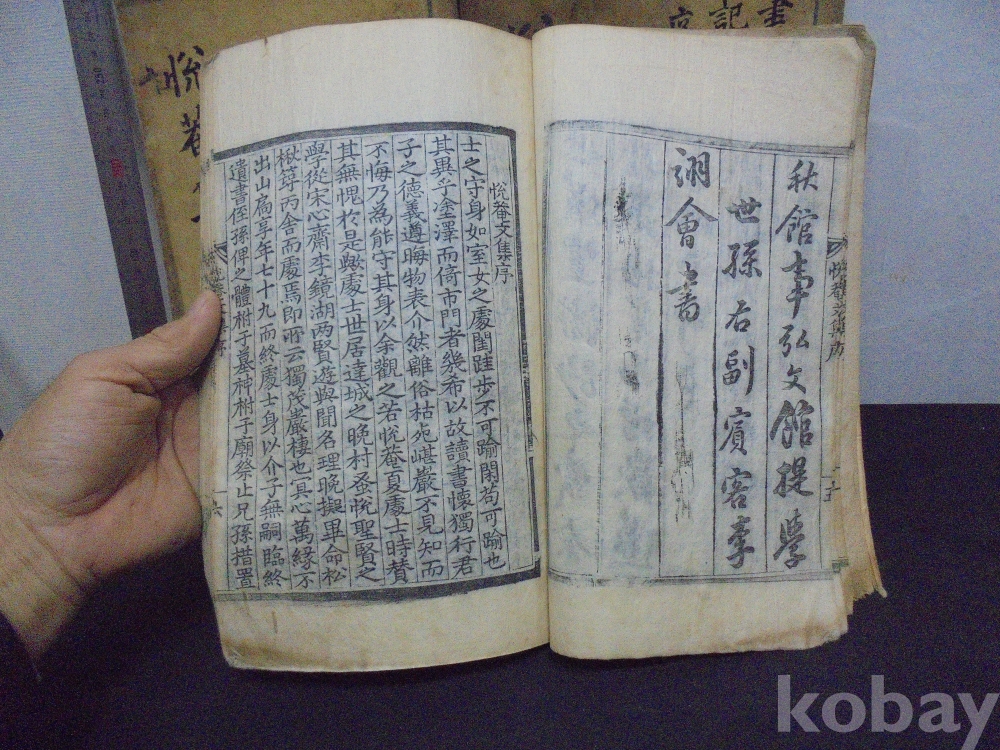 秋館事弘文館提學
世孫右副賓客李
翊會書
悅菴文集序
士之守身如室女之處閨跬步不可踰閑苟可踰也
其異乎塗澤而倚市門者幾希以故讀書懷獨行君
子之德義遵晦物表介然離俗枯死嵁巖不見知而
不悔乃為能守其身以余觀之若悅菴夏處士時賛
其無愧於是歟處士世居達城之晚村爻悅聖賢之
學從宋心齋李鏡湖兩賢遊與聞名理晚擬畢命松
楸葬丙舍而處焉即所云獨茂巖棲也冥心萬緣不
出山扃享年七十九而終處士身以介子無嗣臨終
遺書侄孫俾之體祔于墓神祔于廟祭止兄孫措置
悅菴文集序
六
kobay